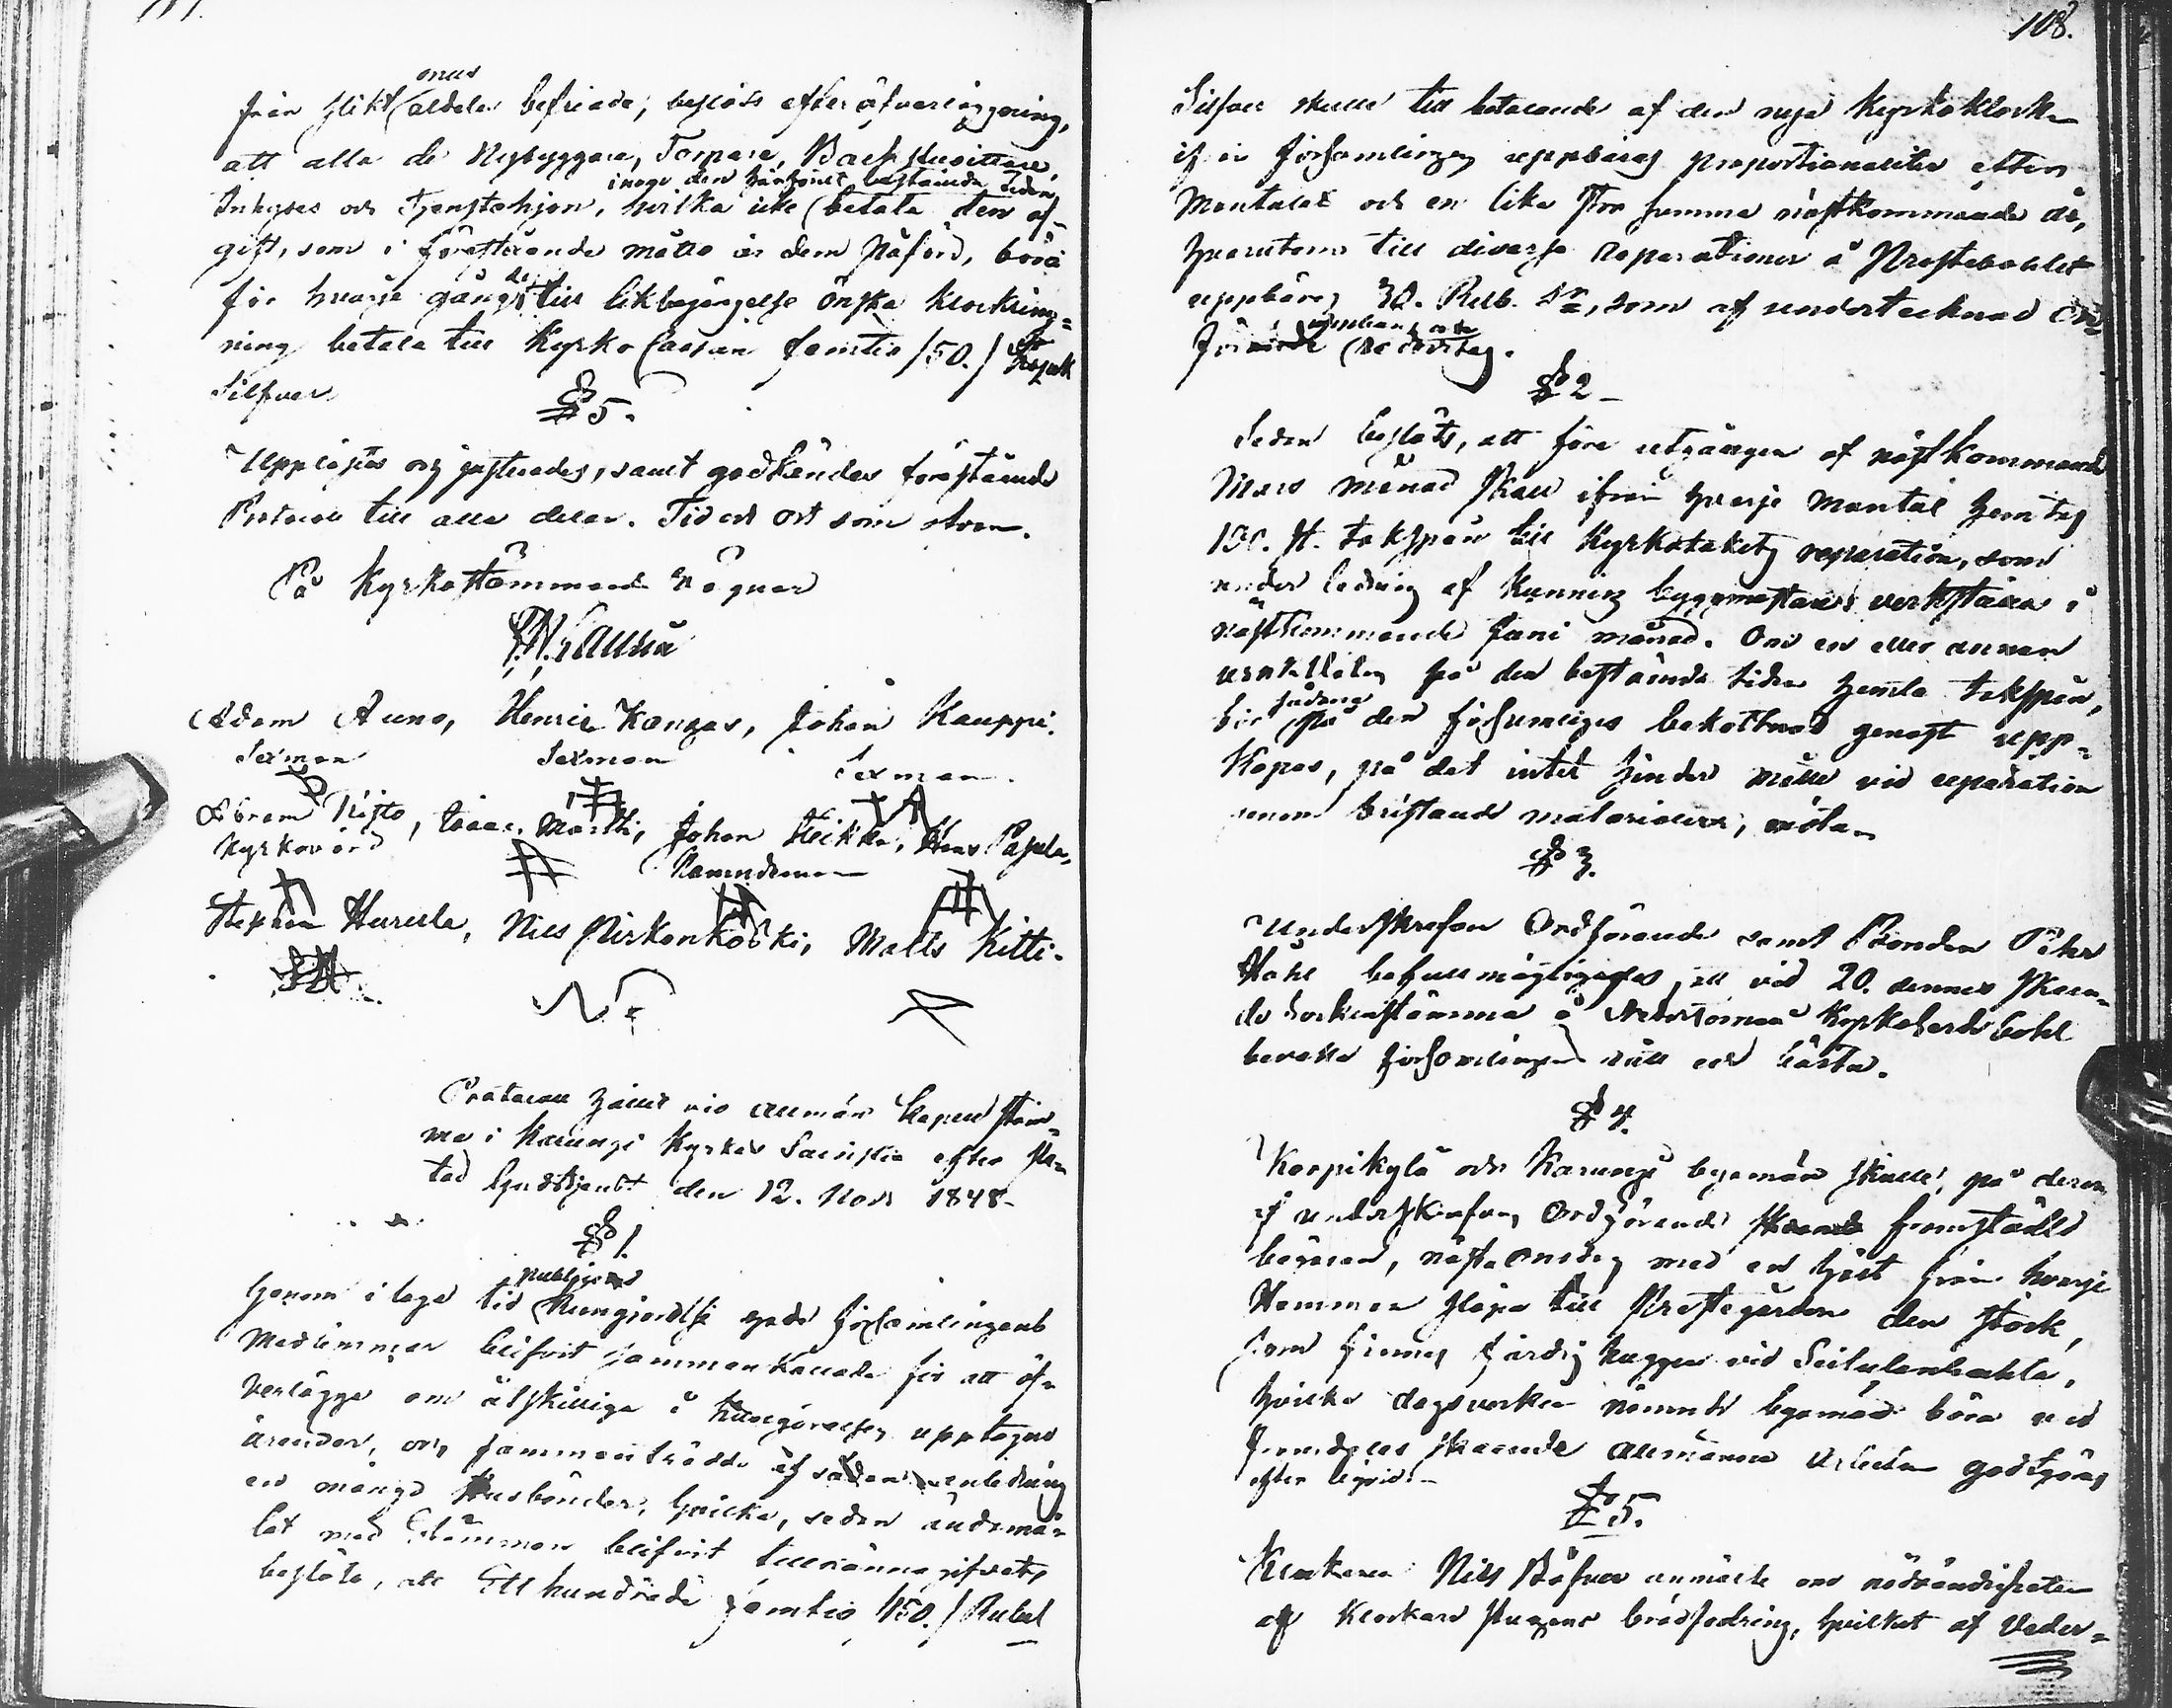 onus
från slikt aldeles befriade, beslöts efter öfverläggning,
att alla de Nybyggare, Torpare, Backstusittare,
inom den härförut bestämda tiden
Inhyses och Tjenstehjon, hvilka icke betala den af-
gift, som i förestående måtto är dem påförd, böra
för hvarje gång de till likbegängelse önska klockring-
ning betala till Kyrko Cassan femtio /50./ Kopek
Silfver.
§ 5.
Upplästes och justerades, samt godkändes förestående
Protocoll till alla delar. Tid och ort som ofvan.
På Kyrkostämmans vägnar
Adam Auno, Henric Kangas, Johan Kauppi.
Sexman Sexman Sexman.
Abram Risto, Isaac Martti, Johan Heikka, Hans Papula,
Kyrkovärd Nämndeman
Stephan Hurula, Nils Pirkonkoski, Matts Kitti.
Protocoll hållit vid allmän Kapell stäm-
ma i Karungi Kyrkas Sacristia efter slu-
tad Gudstjenst den 12. Nov. 1848.
§ 1.
publicerad
Genom i laga tid kungjordt hade församlingens
Medlemmar blifvit sammankallade för att öf-
verlägga om åtskilliga i kungörelsen upptagne
ärender, och sammanträdde af sådan anledning
en mängd Husbönder, hvilka, sedan ändamå-
let med Stämman blifvit tillkännagifvet,
beslöto, att Ett hundrade femtio /150./ Rubel
108.
Silfver skulle till betalande af den nya Kyrkoklockan
af församlingen uppbäras proportionaliter efter
Mantalet och en lika stor summa nästkommande år,
hvarutom till diverse reparationer å Prestebolet
uppbäres 30. Rub. Sr, som af undertecknad Ord-
förande uppbäras och redovisas.
§ 2
Sedan beslöts, att före utgången af nästkommande
Mars månad skall ifrån hvarje Mantal hemtas
150. st. takspån till Kyrkotakets reparation, som
under ledning af kunnig byggmästare verkställes i
nästkommande Juni månad. Om en eller annan
uraktlåter på den bestämda tiden hemta takspån,
bör sådana på den försumliges bekostnad genast upp-
köpas, på det intet hinder måtte vid reparation
genom bristande materialier, möta.
§ 3.
Underskrefven Ordförande samt Bonden Pehr
Hahl befullmägtigades att vid 20. dennes skeen-
de Sockenstämma å Neder Torneå Kyrkoherde bohl
bevaka församlingens rätt och bästa.
§ 4.
Korpikylä och Karungi byamän skulle, på deras
af underskrefven Ordförande framstälde
begäran, nästa Onsdag med en häst från hvarje
Hemman släpa till Prestegården den stock,
som finnes färdig huggen vid
hvilka dagsverken nämnde byamän böra vid
framdeles skeende allmänna arbeten godtgöras
efter liqvid.
§ 5.
Klockaren Nils Båfver anmälte om nödvändigheten
af Klockare stugans brädfodring, hvilket af Veder-